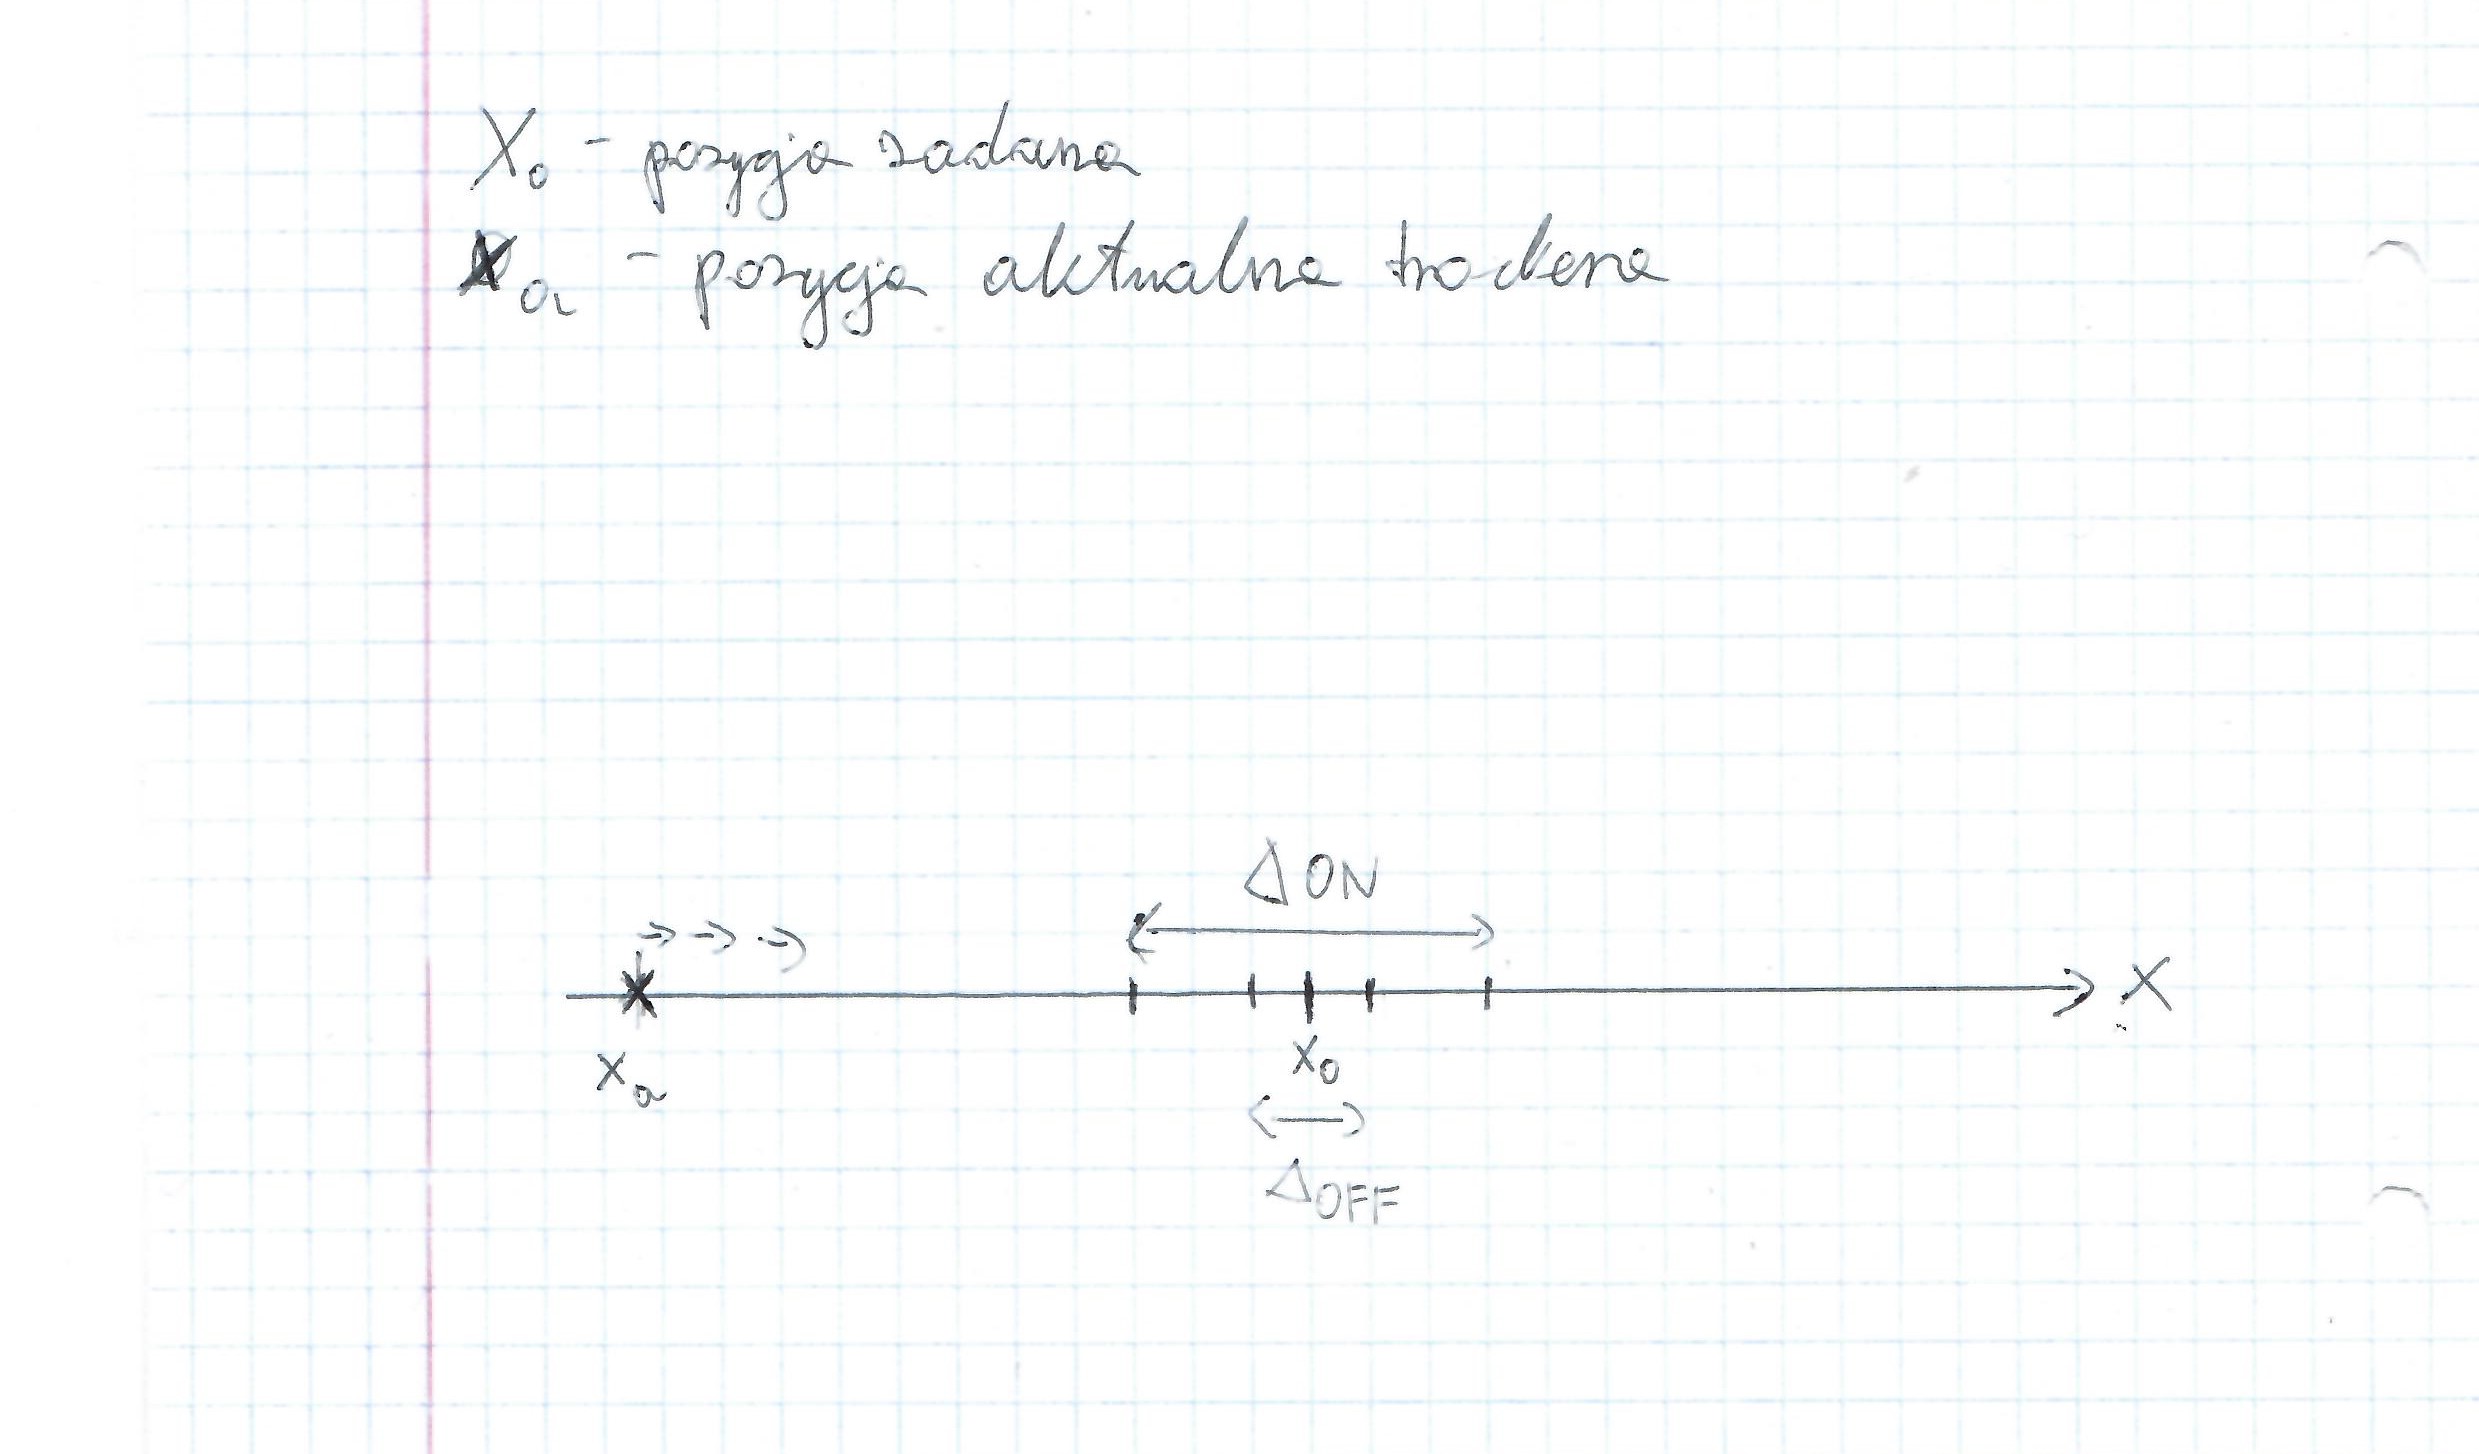 X₀ - pozycja zadana
Xa - pozycja aktualna trackera
Δ ON
X
Xa
X₀
Δ OFF